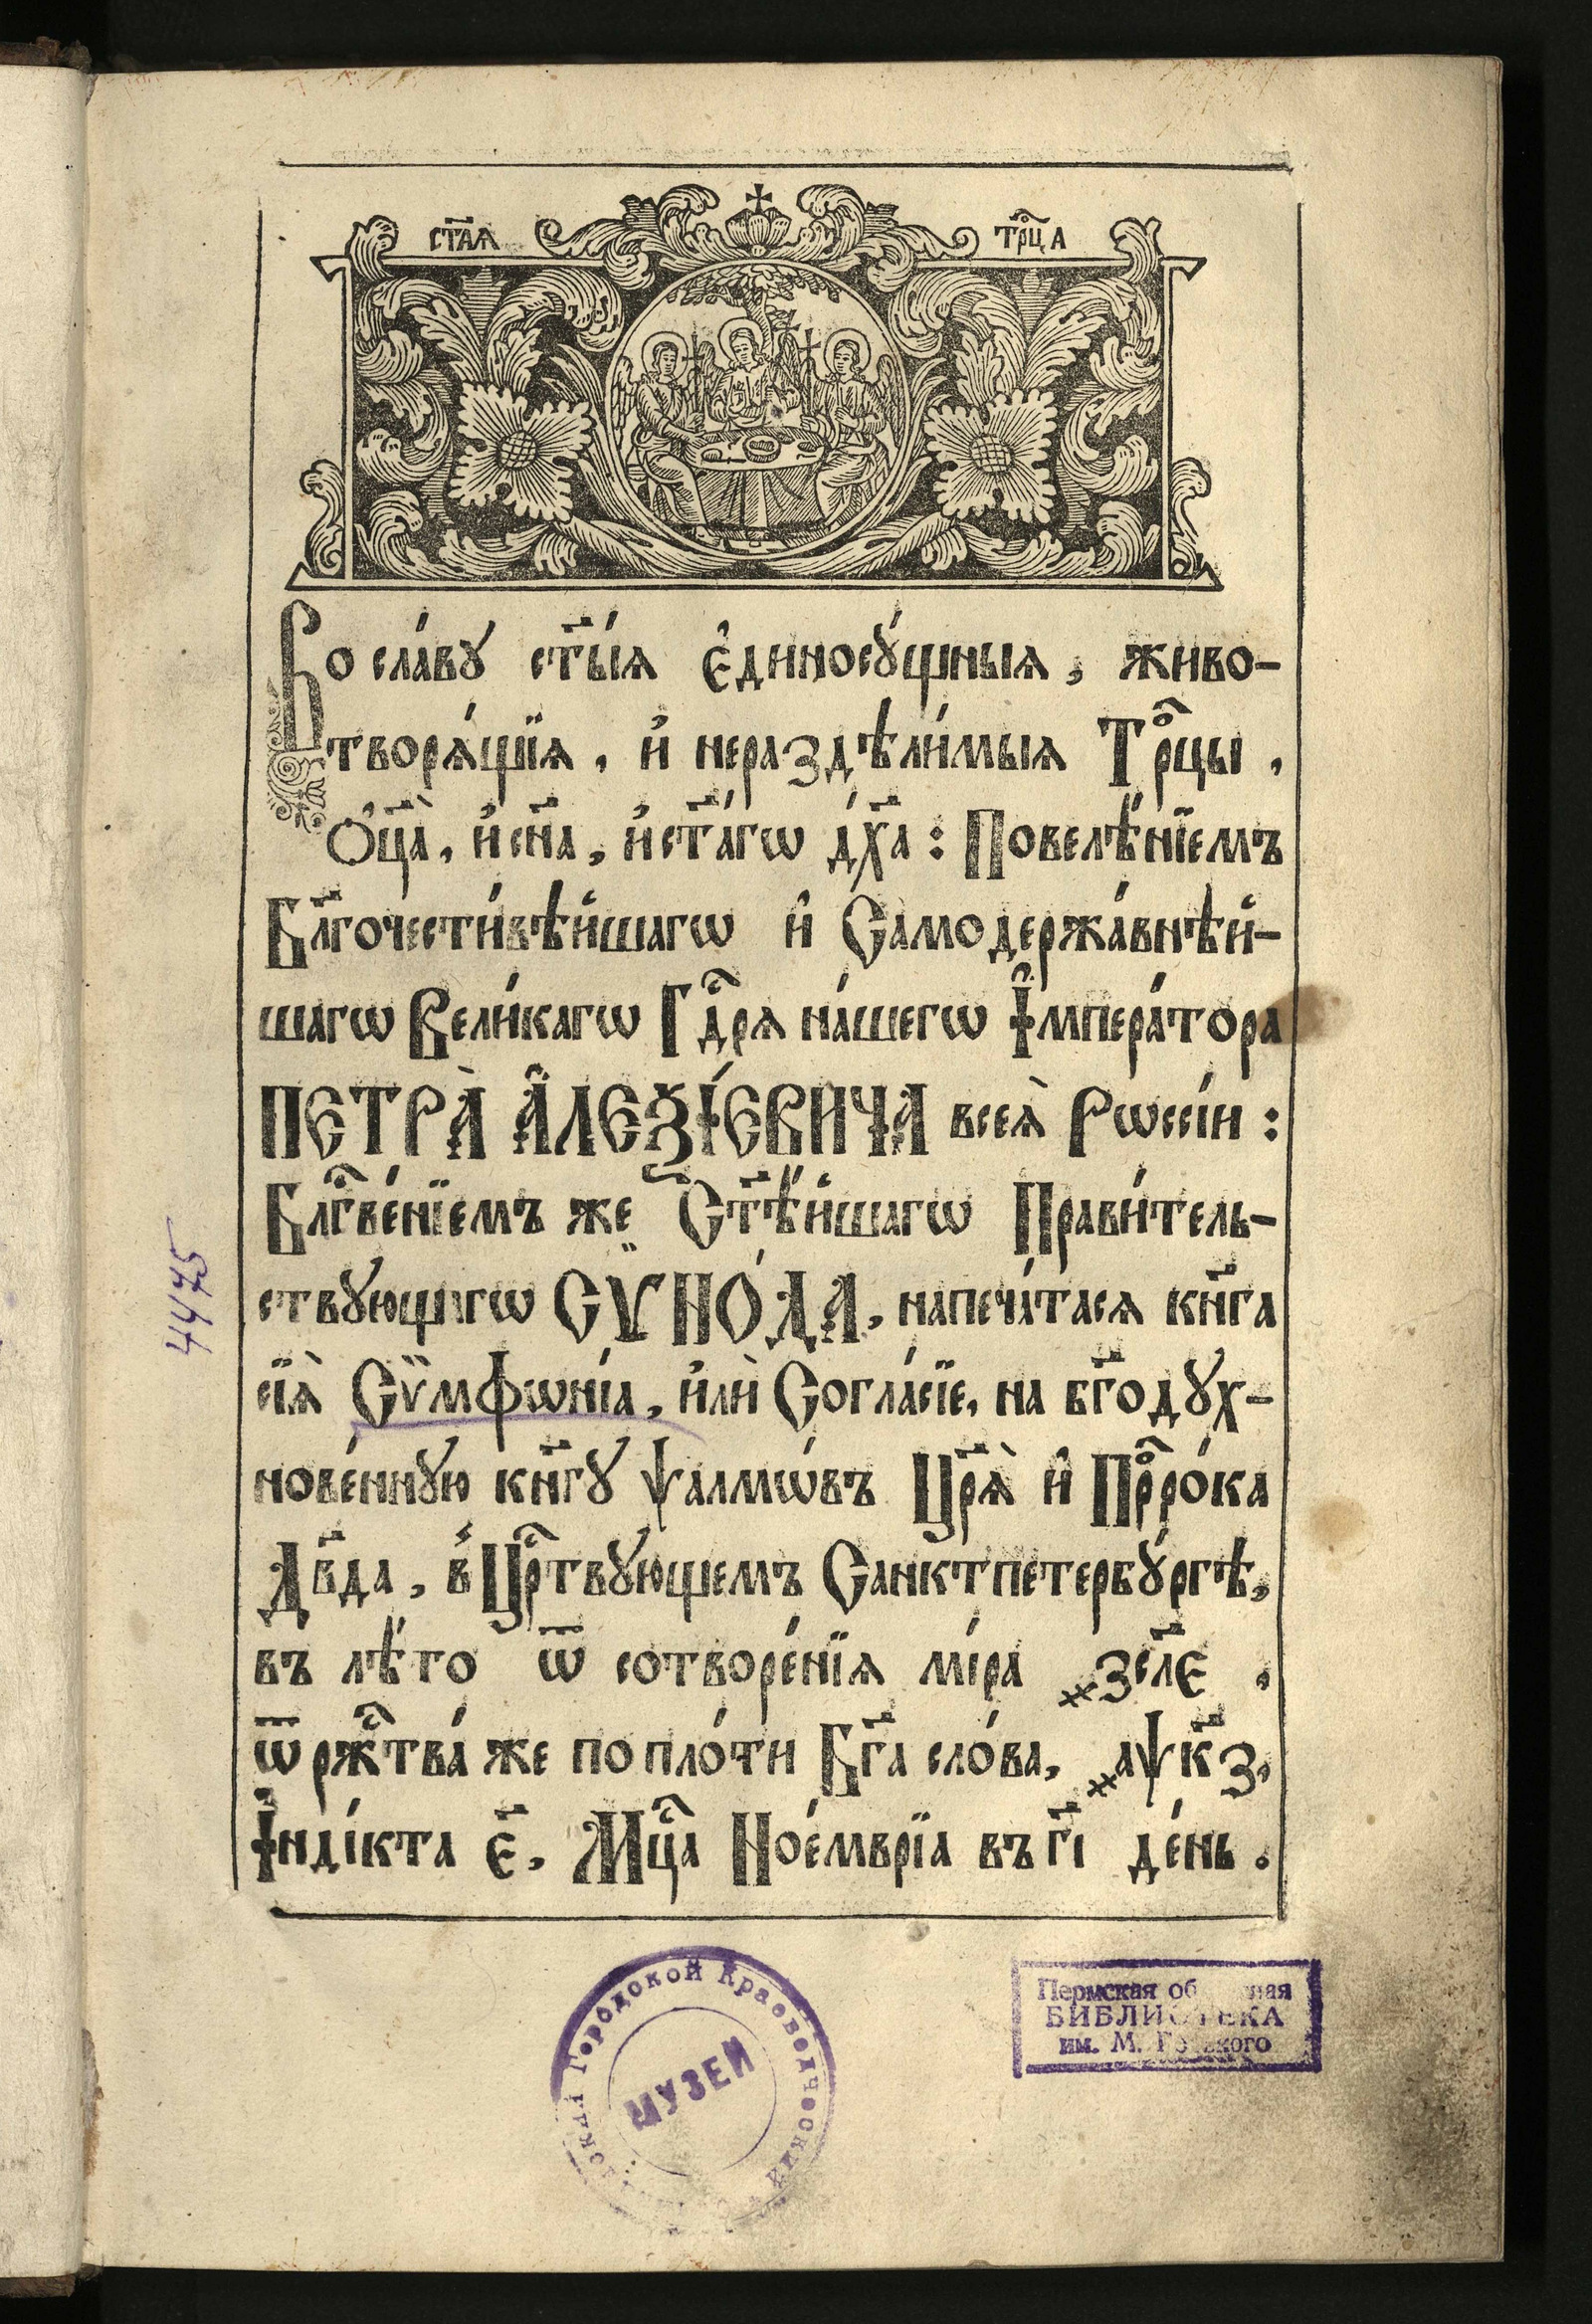 ст҃аѧ трⷪ҇ца
Во сла́вꙋ ст҃ы́ѧ є҆диносꙋ́щныѧ, живо-
творѧ́щїѧ, и҆ нераздѣли́мыѧ Трⷪ҇цы,
Ѻ҆ц҃а̀, и҆ сн҃а, и҆ ст҃а́гѡ дх҃а: Повелѣ́нїемъ
Бл҃гочести́вѣйшагѡ и҆ Самодержа́внѣй-
шагѡ Вели́кагѡ Гдⷭ҇рѧ на́шегѡ І҆мпера́тора
ПЕТРА̀ А҆ЛЕѮІ́ЕВИЧА всеѧ̀ Рѡссі́и:
Блгⷭ҇ве́нїемъ же Ст҃ѣ́йшагѡ Прави́тель-
ствꙋющагѡ СѴНО́ДА, напеча́тасѧ кн҃га
сїѧ̀ Сѷмфѡні́а, и҆лѝ Согла́сїе, на бг҃одꙋх-
нове́ннꙋю кн҃гꙋ ѱалмѡ́въ Цр҃ѧ̀ и҆ Прⷪ҇ро́ка
Дв҃да, в Црⷭ҇твꙋющемъ Санктпетербꙋ́ргѣ,
въ лѣ́то ѿ сотворе́нїѧ мі́ра ҂зсл҃є.
ѿ ржⷭ҇тва́ же по пло́ти Бг҃а сло́ва, ҂аѱк҃з,
І҆нді́кта є҃, Мцⷭ҇а Ное́мврїа въ г҃і де́нь.
4475
Городской Краеведческий
МУЗЕЙ
Пермская
БИБЛИОТЕКА
им. М. Горького